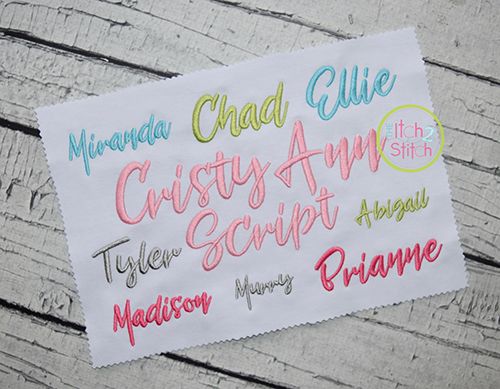 Miranda
Chad
Ellie
Cristy Ann
Script
Tyler
Abigail
Madison
Murry
Brianne
the Itch 2 Stitch